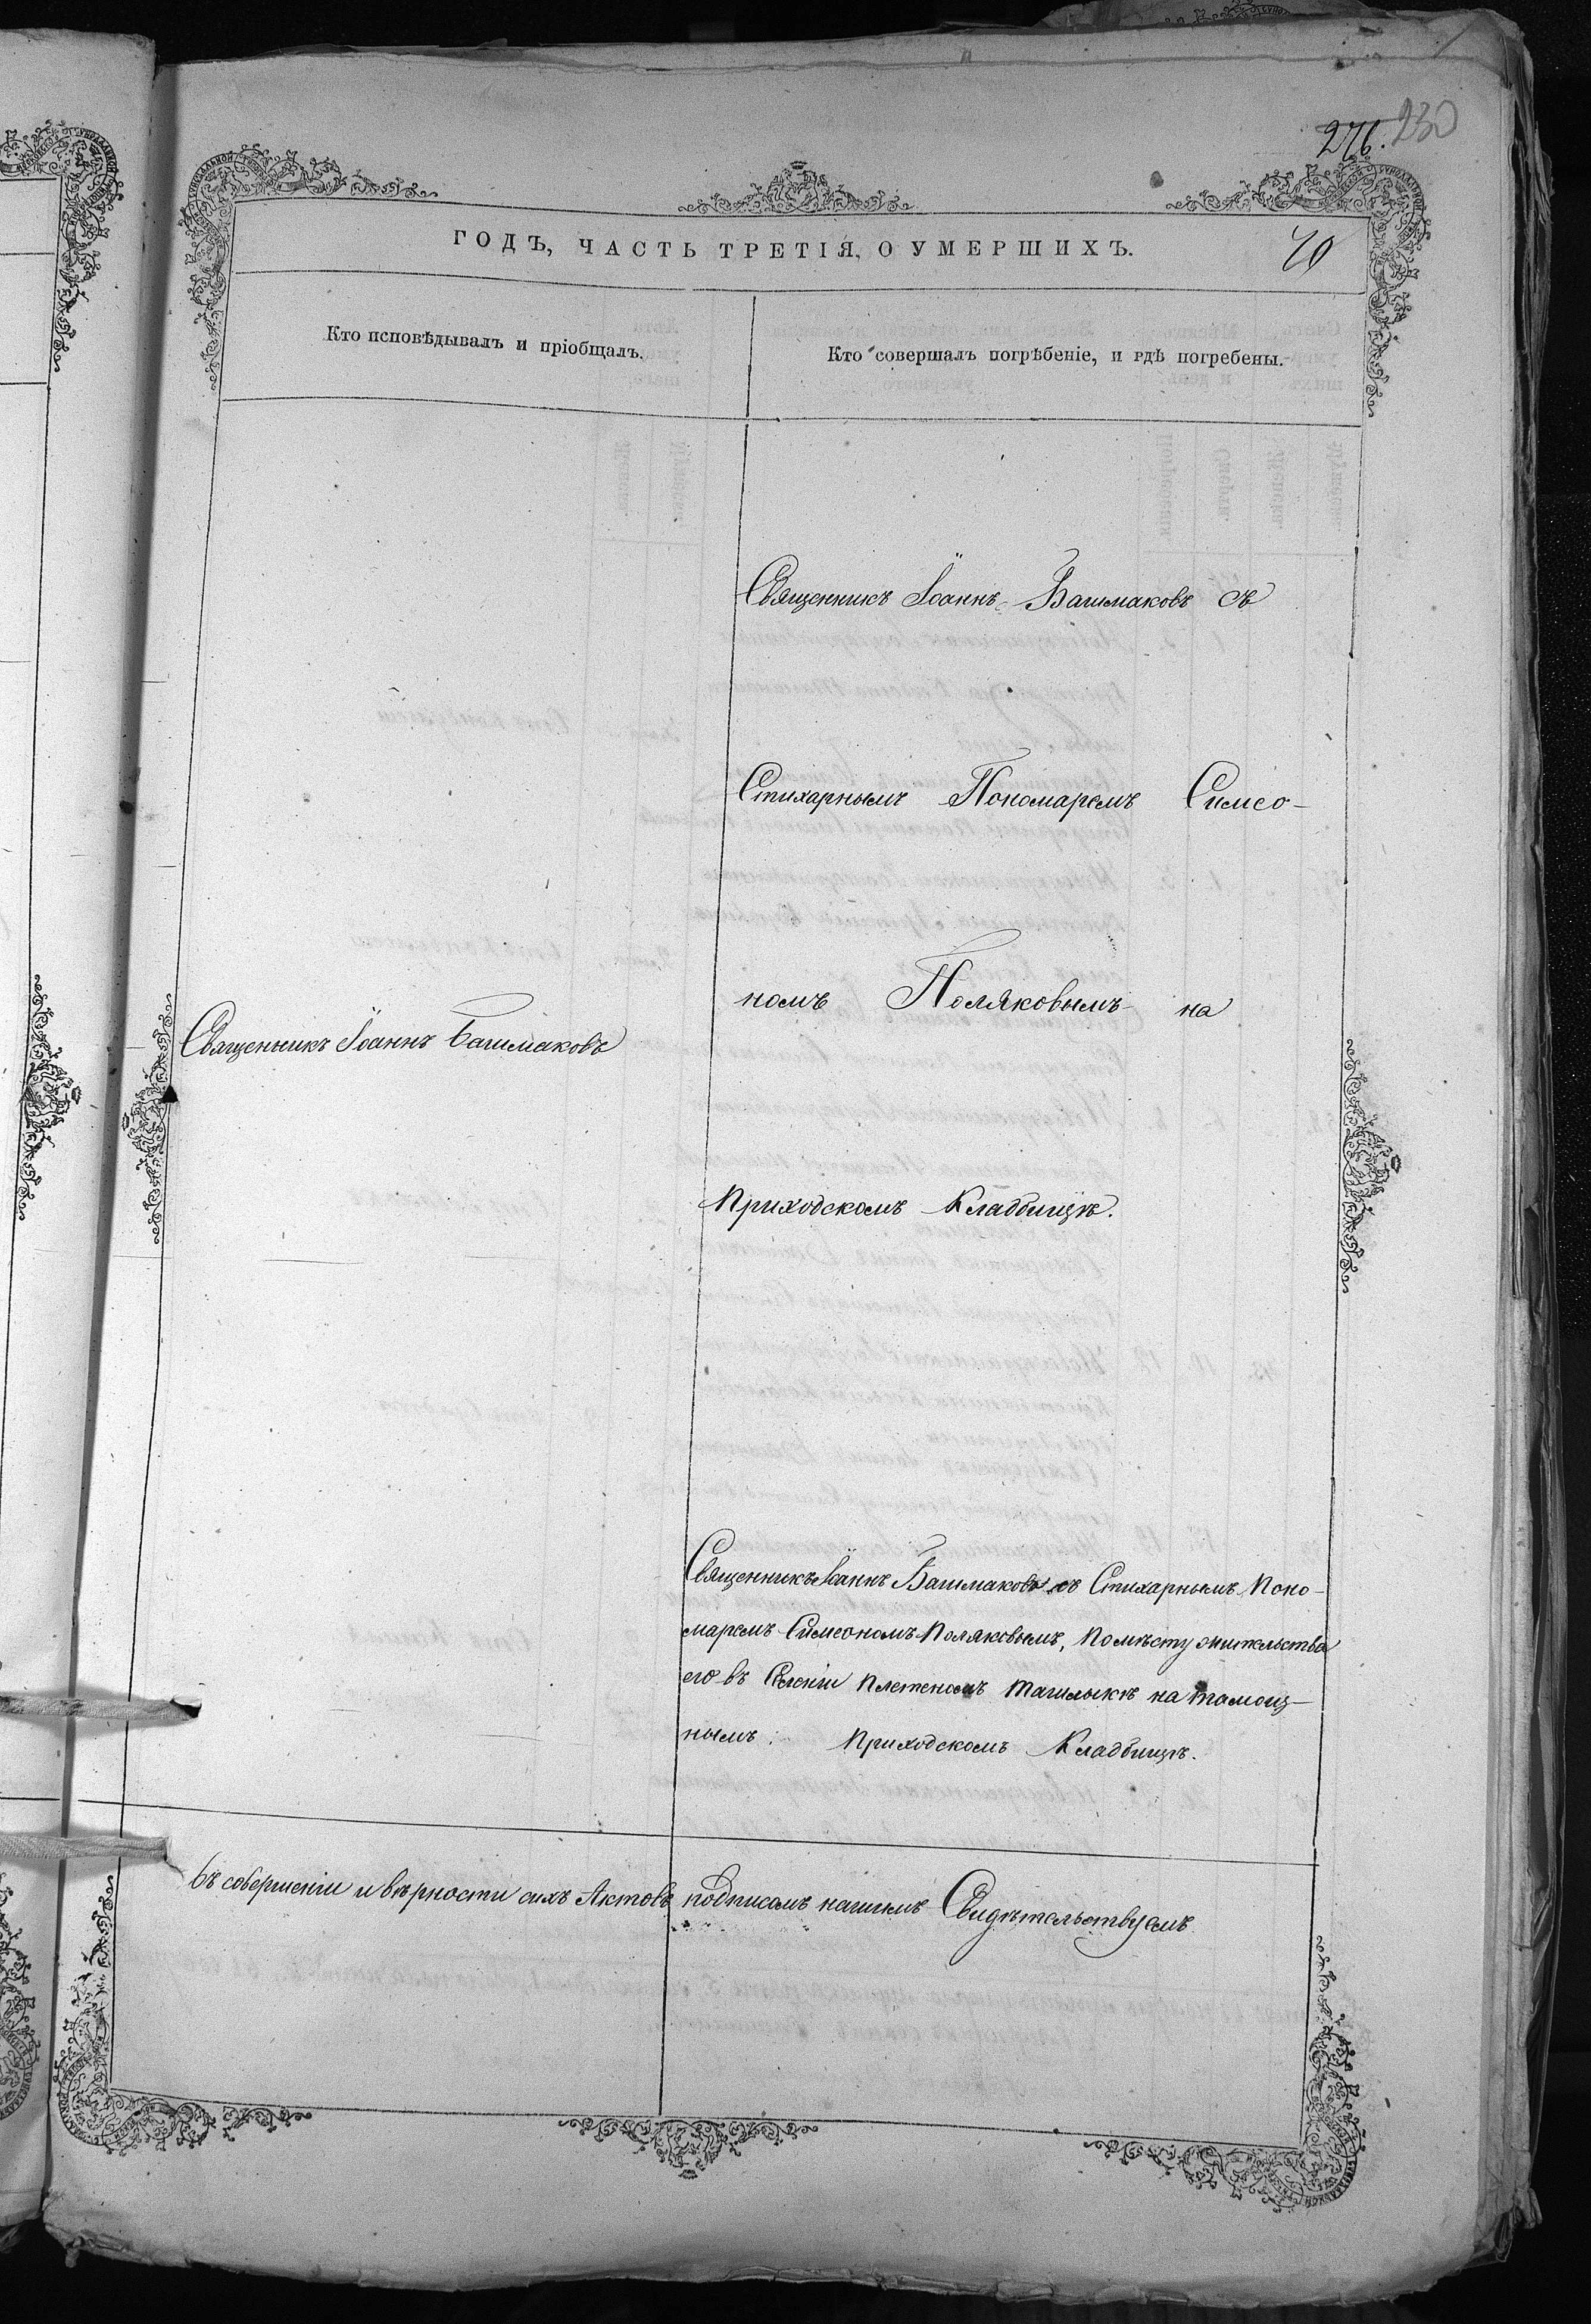 276. 230
ГОДЪ, ЧАСТЬ ТРЕТІЯ, О УМЕРШИХЪ.
70
Кто исповѣдывалъ и пріобщалъ.
Кто совершалъ погрѣбеніе, и гдѣ погребены.
Священникъ Іоаннъ Башмаковъ съ
Стихарнымъ Пономаремъ Симео-
номъ Поляковымъ на
Приходскомъ Кладбищѣ.
Священникъ Іоаннъ Башмаковъ
Священникъ Іоаннъ Башмаковъ съ Стихарнымъ Поно-
маремъ Симеономъ Поляковымъ, по мѣсту жительства
его въ Селеніи Плетеномъ Ташлыкѣ на тамош-
нымъ Приходскомъ Кладбищѣ.
Въ совершеніи и вѣрности сихъ Актовъ подписомъ нашимъ Свидѣтельствуемъ